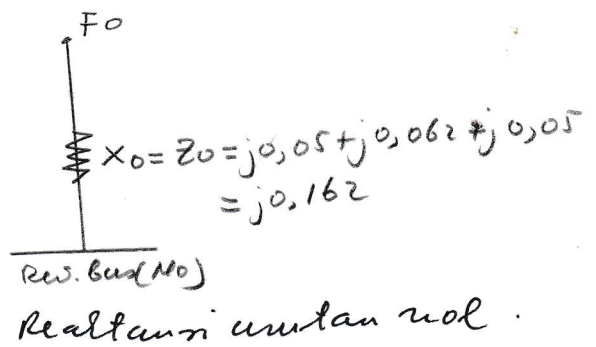 F0
X0 = Z0 = j0,05 + j0,062 + j0,05
= j0,162
Rev. Bus (N0)
Reaktansi urutan nol .